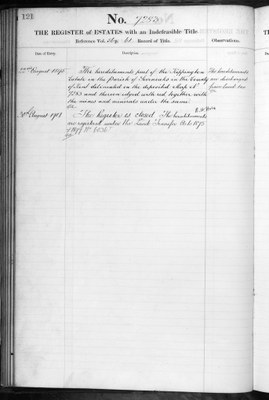 121
No. 7283
THE REGISTER of ESTATES with an Indefeasible Title
Reference Vol. Fol. Record of Title.
Date of Entry.
Description.
Observations.
August
The hereditaments part of the Kippington
Estate in the parish of Sevenoaks in the County
of Kent delineated on the deposited Map No
7283 and thereon edged with red together with
the mines and minerals under the same
The hereditaments
are discharged
from Land Tax
August
The Register is closed The hereditaments
are registered under the Land Transfer Acts 1875